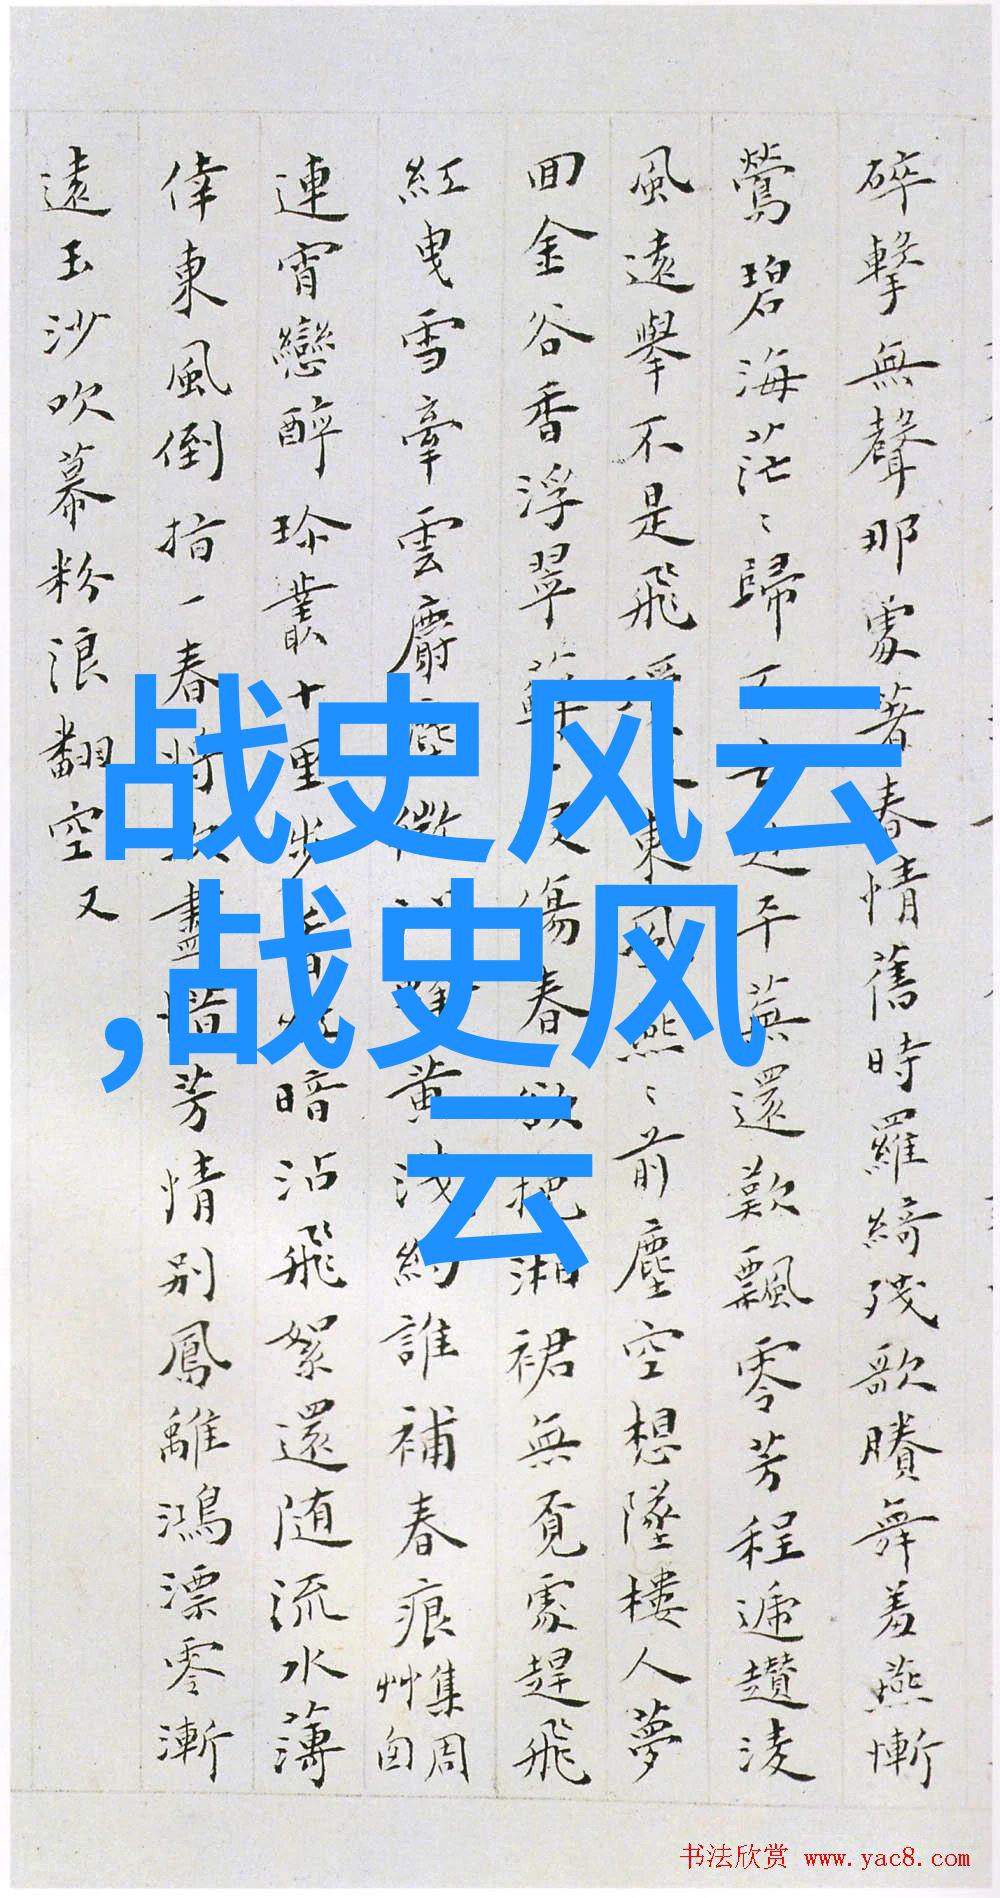 碎擊無聲那處著春情舊時羅綺殘歌賸舞羞燕慚
鶯碧海茫〻歸平蕪還歎飄零芳程遞趲淩
風遠舉不是飛東風燕〻前塵空想墜樓人夢
回金谷香浮翠傷春欲挹湘裙無覓處趕飛
紅曳雪牽雲麝塵微黃淺約誰補春痕
集周
艸囪
連宵戀醉珍叢十里步香暗沾飛絮還随流水薄
倖東風倒指一春將次盡惜芳情別鳳離鴻漂零漸
遠玉沙吹幕粉浪翻空又
战史风云
,战史风
云
书法欣赏 www.yac8.com